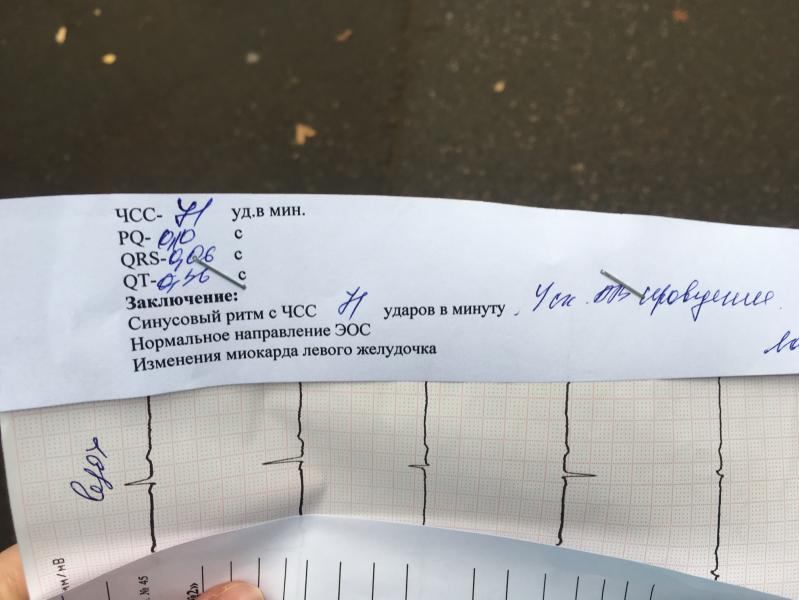 ЧСС- 71 уд.в мин.
PQ- 0,10 с
QRS- 0,06 с
QT- 0,36 с
Заключение:
Синусовый ритм с ЧСС 71 ударов в минуту, Уск. проведение.
Нормальное направление ЭОС
Изменения миокарда левого желудочка
вдох
мм/мВ
№ 45